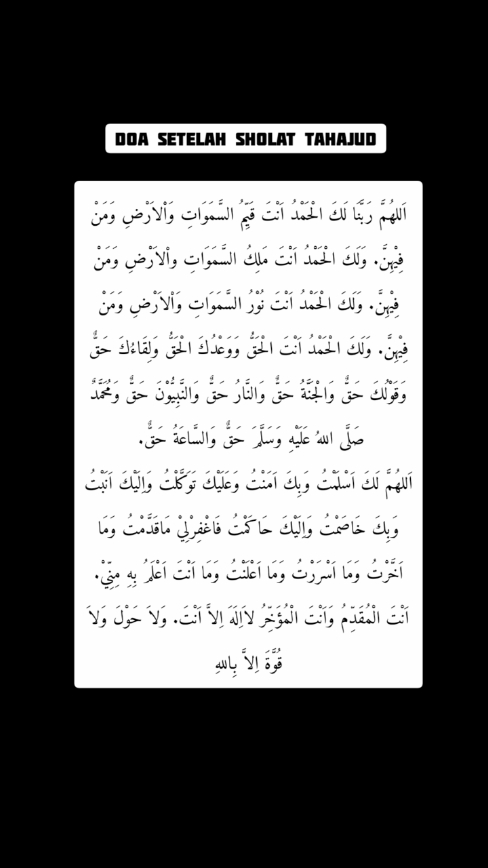 DOA SETELAH SHOLAT TAHAJUD
اَللهُمَّ رَبَّنَا لَكَ الْحَمْدُ اَنْتَ قَيِّمُ السَّمَوَاتِ وَاْلاَرْضِ وَمَنْ
فِيْهِنَّ. وَلَكَ الْحَمْدُ اَنْتَ مَلِكُ السَّمَوَاتِ واْلاَرْضِ وَمَنْ
فِيْهِنَّ. وَلَكَ الْحَمْدُ اَنْتَ نُوْرُ السَّمَوَاتِ وَاْلاَرْضِ وَمَنْ
فِيْهِنَّ. وَلَكَ الْحَمْدُ اَنْتَ الْحَقُّ وَوَعْدُكَ الْحَقُّ وَلِقَاءُكَ حَقٌّ
وَقَوْلُكَ حَقٌّ وَالْجَنَّةُ حَقٌّ وَالنَّارُ حَقٌّ وَالنَّبِيُّوْنَ حَقٌّ وَمُحَمَّدٌ
صَلَّى اللهُ عَلَيْهِ وَسَلَّمَ حَقٌّ وَالسَّاعَةُ حَقٌّ.
اَللهُمَّ لَكَ اَسْلَمْتُ وَبِكَ اَمَنْتُ وَعَلَيْكَ تَوَكَّلْتُ وَاِلَيْكَ اَنَبْتُ
وَبِكَ خَاصَمْتُ وَاِلَيْكَ حَاكَمْتُ فَاغْفِرْلِيْ مَاقَدَّمْتُ وَمَا
اَخَّرْتُ وَمَا اَسْرَرْتُ وَمَا اَعْلَنْتُ وَمَا اَنْتَ اَعْلَمُ بِهِ مِنِّيْ.
اَنْتَ الْمُقَدِّمُ وَاَنْتَ الْمُؤَخِّرُ لاَاِلَهَ اِلاَّ اَنْتَ. وَلاَ حَوْلَ وَلاَ
قُوَّةَ اِلاَّ بِاللهِ